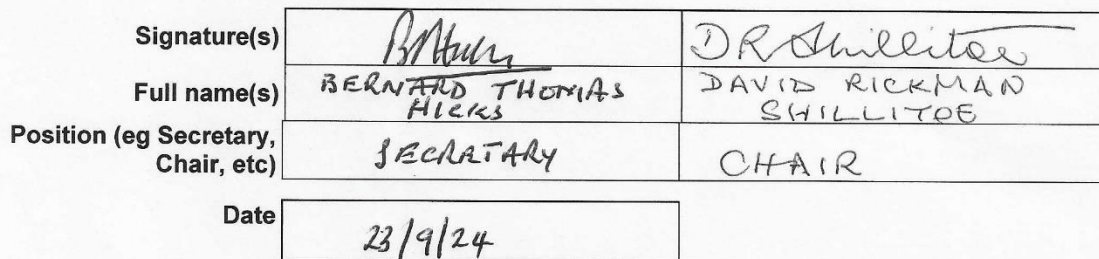 Signature(s) DR Shillitoe
Full name(s) BERNARD THOMAS DAVID RICKMAN
HICKS SHILLITOE
Position (eg Secretary,
Chair, etc) SECRETARY CHAIR
Date 23/9/24